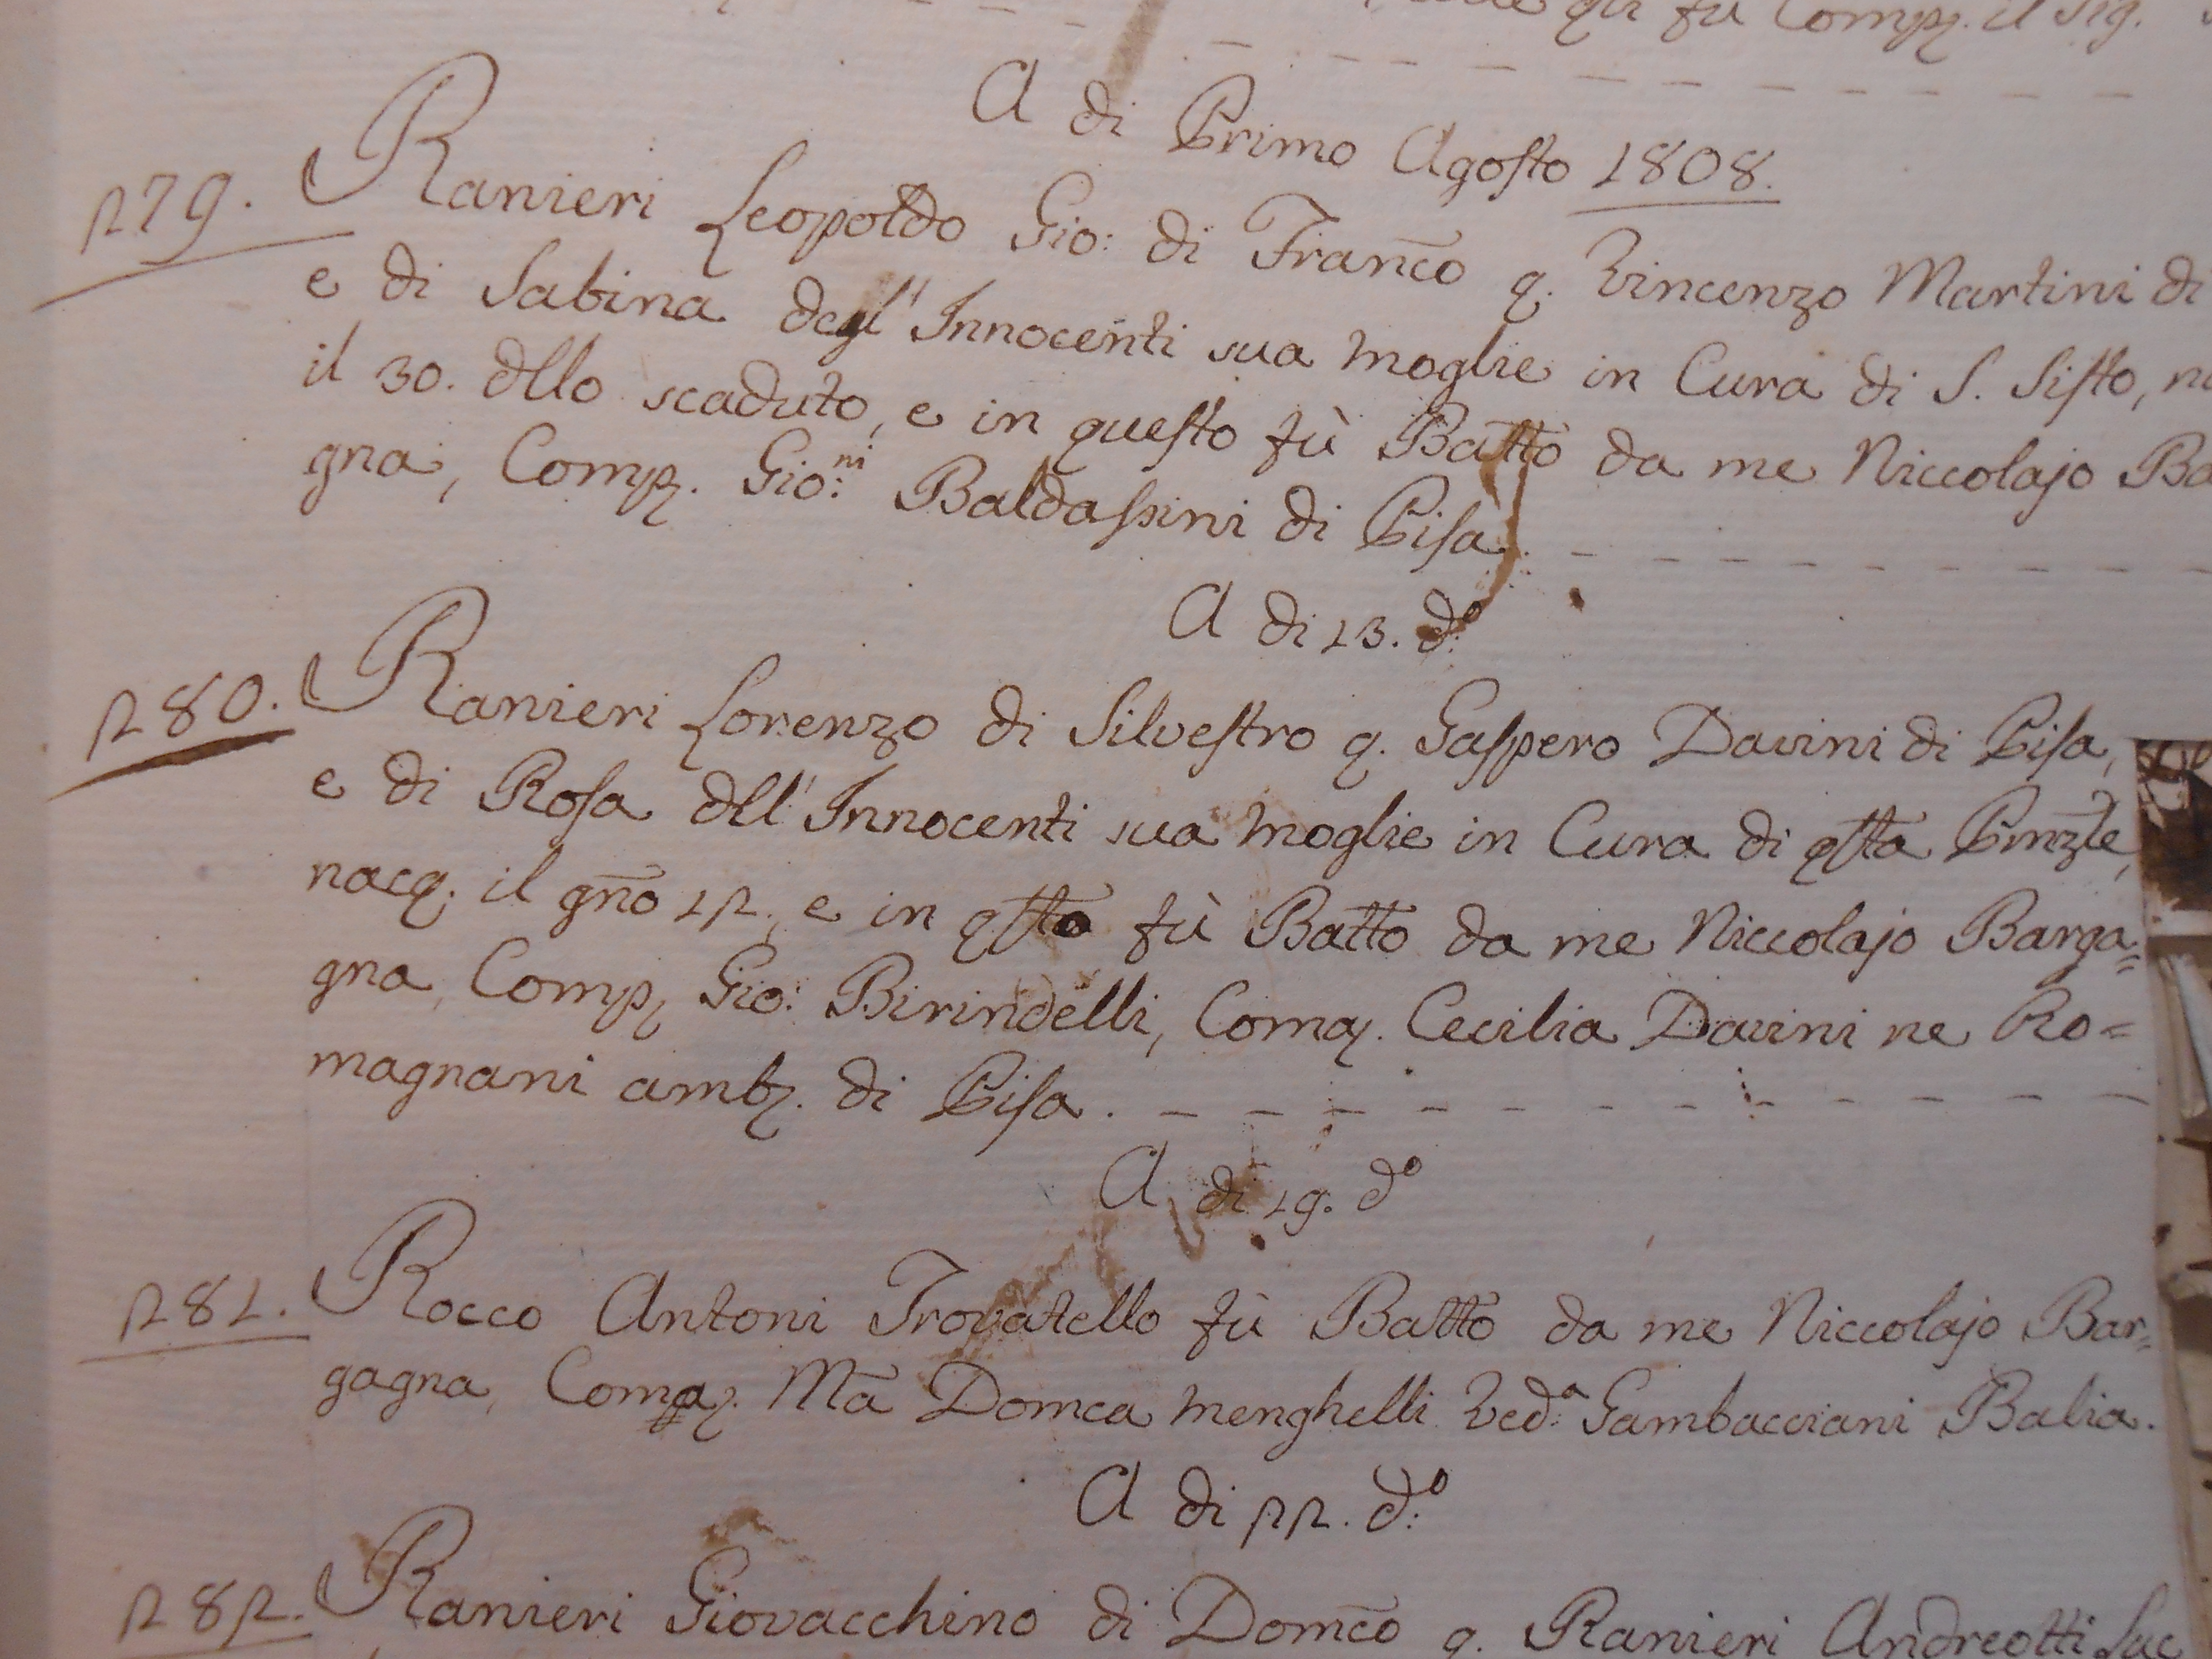 fu Comp. il Sig.
A di Primo Agosto 1808.
279. Ranieri Leopoldo Gio: di Franco q. Vincenzo Martini di
e di Sabina degl' Innocenti sua Moglie in Cura di S. Sisto, na
il 30. dllo scaduto, e in questo fù Batto da me Niccolajo Ba
gna, Comp. Gio:ni Baldassini di Pisa.
A di 13. do:
280. Ranieri Lorenzo di Silvestro q. Gaspero Davini di Pisa,
e di Rosa dll' Innocenti sua Moglie in Cura di qsta Pmzle,
nacq. il gno 12, e in qsto fù Batto da me Niccolajo Barga=
gna, Comp. Gio: Birindelli, Coma. Cecilia Davini ne Ro=
magnani amb. di Pisa.
A di 19. do
281. Rocco Antoni Trovatello fù Batto da me Niccolajo Bar=
gagna, Coma. Ma Domca Menghelli Ved:a Gambacciani Balia.
A di 22. do:
282. Ranieri Giovacchino di Domco q. Ranieri Andreotti Luc